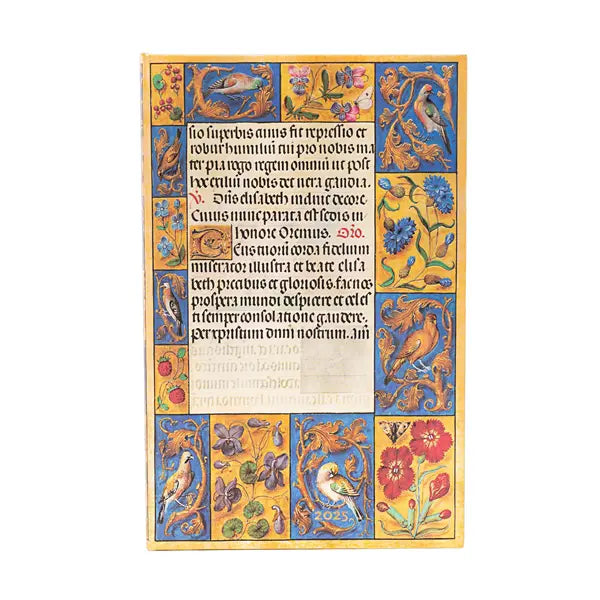 sio superbis cuius fit repressio et
robur humilium cui pro nobis ma
ter pia rogo regem omnium ut post
hoc exilium nobis det uera gaudia.
V. elisabeth decore.
Cuius nunc parata est sedis in
honore Oremus. Oro.
Deus tuorum corda fidelium
miserator illustra et beate elisa
beth precibus et gloriosis. fac nos
prospera mundi despicere et celes
ti semper consolatione gaudere.
Per xpristum dnm nostrum. Am
2025